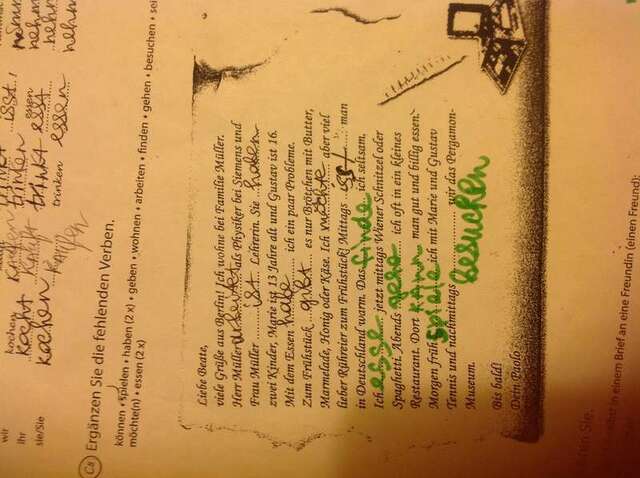 wir kochen kaufen trinken essen
ihr kocht kauft trinkt esst
sie/Sie kochen kaufen trinken essen
nehmen
C8 Ergänzen Sie die fehlenden Verben.
können • spielen • haben (2 x) • geben • wohnen • arbeiten • finden • gehen • besuchen • sei
möchte(n) • essen (2 x)
Liebe Beate,
viele Grüße aus Berlin! Ich wohne bei Familie Müller.
Herr Müller arbeitet als Physiker bei Siemens und
Frau Müller ist Lehrerin. Sie haben
zwei Kinder, Marie ist 13 Jahre alt und Gustav ist 16.
Mit dem Essen habe ich ein paar Probleme.
Zum Frühstück gibt es nur Brötchen mit Butter,
Marmelade, Honig oder Käse. Ich möchte aber viel
lieber Rühreier zum Frühstück! Mittags isst man
in Deutschland warm. Das finde ich seltsam.
Ich esse jetzt mittags Wiener Schnitzel oder
Spaghetti. Abends gehe ich oft in ein kleines
Restaurant. Dort kann man gut und billig essen.
Morgen früh spiele ich mit Marie und Gustav
Tennis und nachmittags besuchen wir das Pergamon-
Museum.
Bis bald!
Dein Paolo
in einem Brief an eine Freundin (einen Freund):